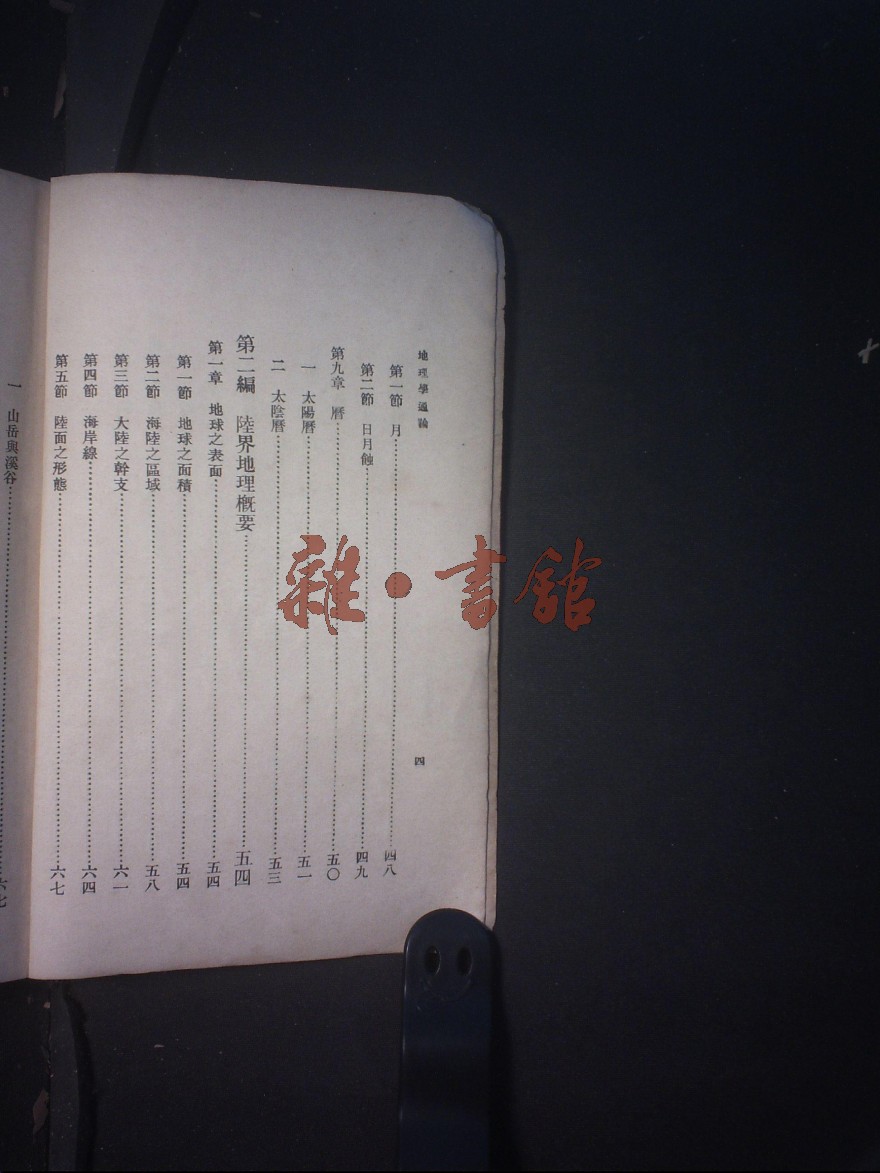 地理學通論
四
第一節 月……四八
第二節 日月蝕……四九
第九章 曆……五〇
一 太陽曆……五一
二 太陰曆……五三
第二編 陸界地理概要……五四
第一章 地球之表面……五四
第一節 地球之面積……五四
第二節 海陸之區域……五八
第三節 大陸之幹支……六一
第四節 海岸線……六四
第五節 陸面之形態……六七
一 山岳與溪谷……六七
雜·書館